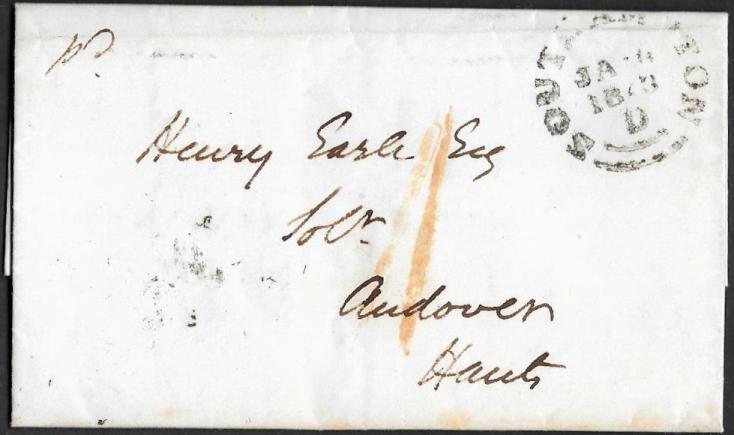 pd
SOUTH TON
JA
18
D
1
Henry Earle Esq
Solr
Andover
Hants